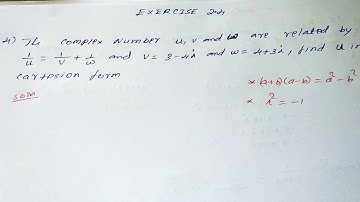 EXERCISE 2.4
4) The complex number u, v and w are related by
1/u = 1/v + 1/w and v = 3-4i and w = 4+3i, find u in
cartesian form
* (a+b)(a-b) = a² - b²
soln
* i² = -1